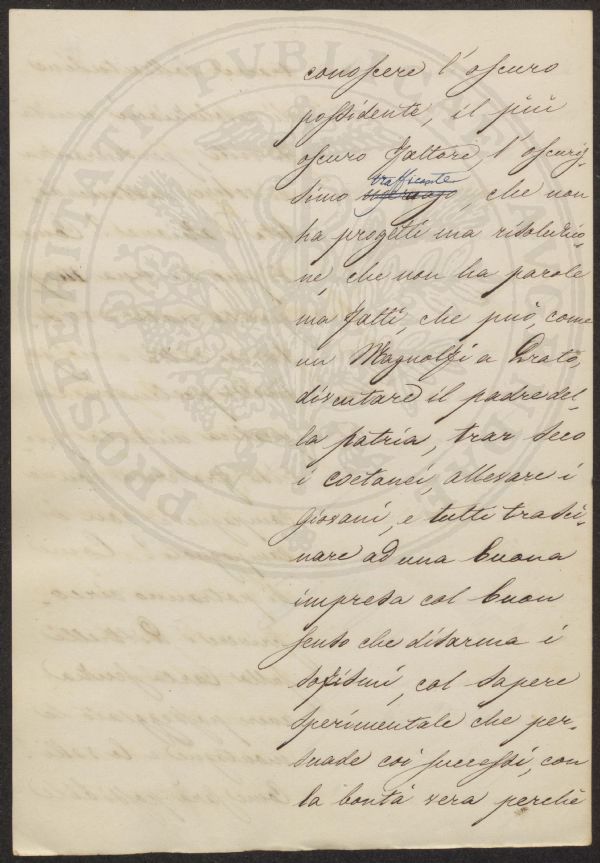 conoscere l'oscuro
possidente, il più
oscuro fattore, l'oscuris-
simo trafficante che non
ha progetti ma risoluzio-
ne, che non ha parole
ma fatti, che può, come
un Magnolfi a Prato,
diventare il padre del-
la patria, trar seco
i coetanei, allevare i
giovani, e tutti trasci-
nare ad una buona
impresa col buon
senso che disarma i
sofismi, col sapere
sperimentale che per-
suade coi successi, con
la bontà vera perchè
PROSPERITATI PVBLICAE